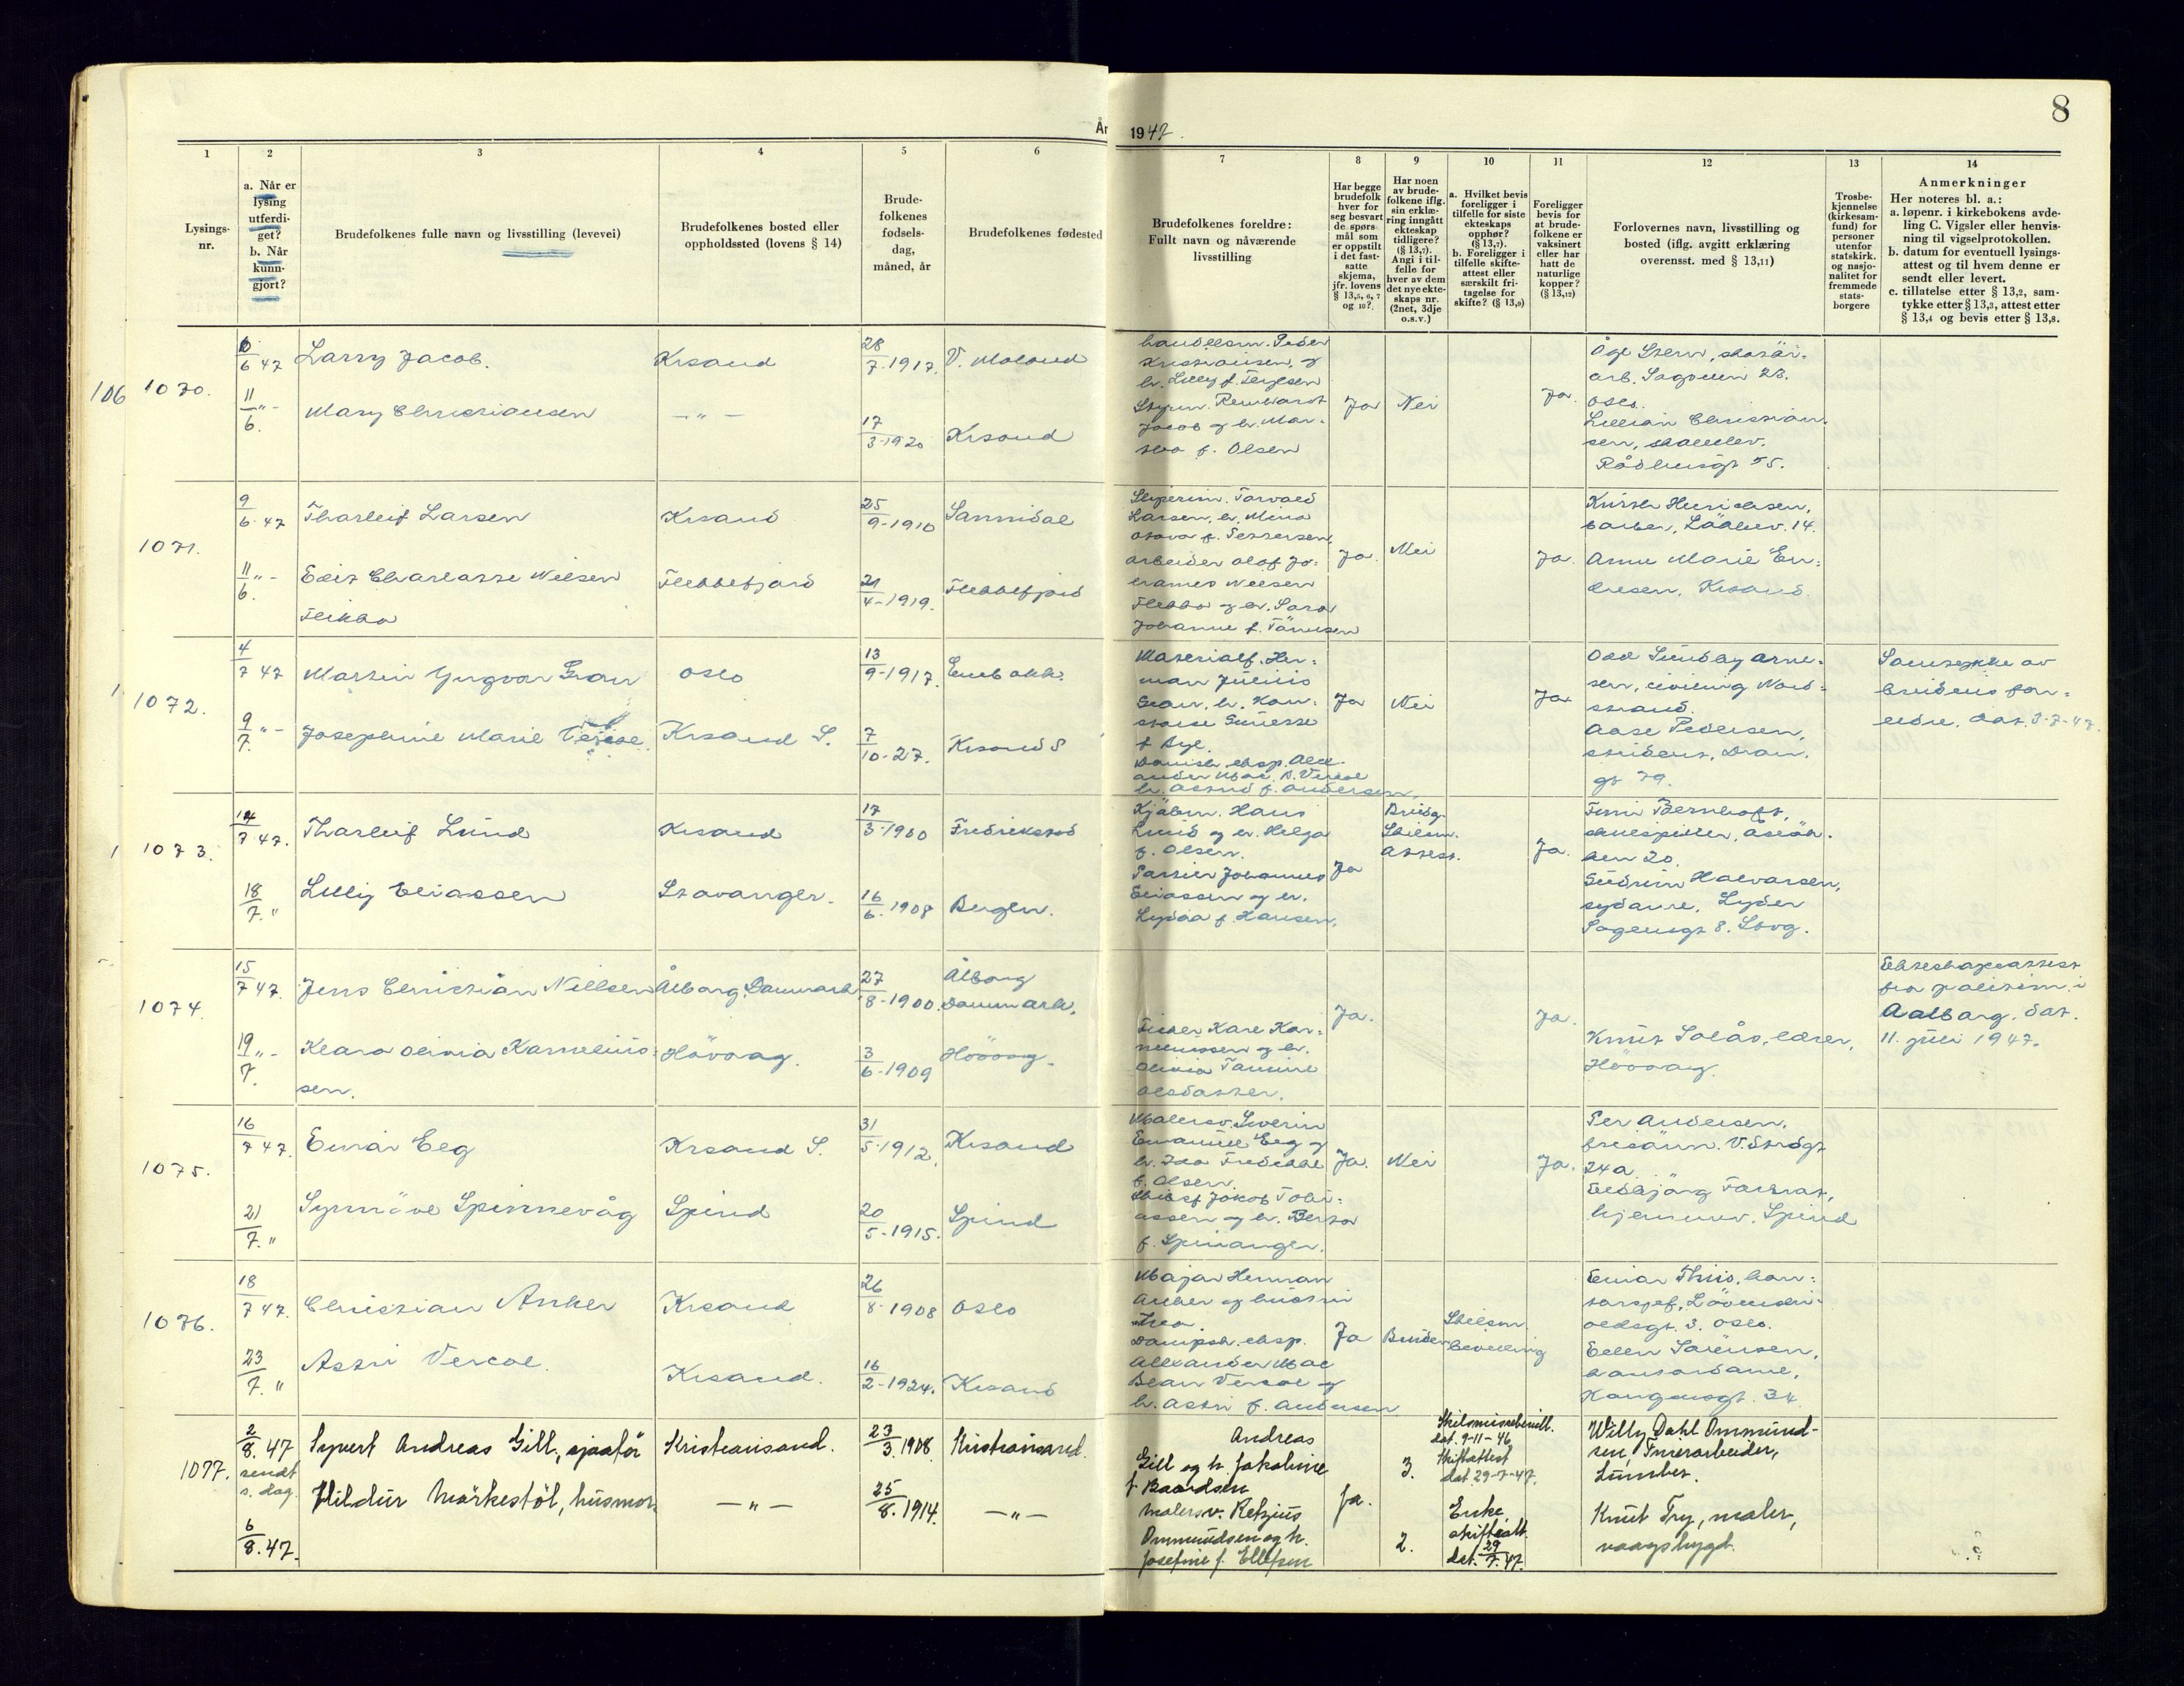 8
År 1947.
1 2 3 4 5 6 7 8 9 10 11 12 13 14
Lysings-
nr.
a. Når er
lysing
utferdi-
get?
b. Når
kunn-
gjort?
Brudefolkenes fulle navn og livsstilling (levevei)
Brudefolkenes bosted eller
oppholdssted (lovens § 14)
Brude-
folkenes
fødsels-
dag,
måned, år
Brudefolkenes fødested
Brudefolkenes foreldre:
Fullt navn og nåværende
livsstilling
Har begge
brudefolk
hver for
seg besvart
de spørs-
mål som
er oppstilt
i det fast-
satte
skjema,
jfr. lovens
§ 13,5, 6, 7
og 10?
Har noen
av brude-
folkene iflg.
sin erklæ-
ring inngått
ekteskap
tidligere?
(§ 13,7).
Angi i til-
felle for
hver av dem
det nye ekte-
skaps nr.
(2net, 3dje
o.s.v.)
a. Hvilket bevis
foreligger i
tilfelle for siste
ekteskaps
opphør?
(§ 13,7).
b. Foreligger i
tilfelle skifte-
attest eller
særskilt fri-
tagelse for
skifte? (§ 13,9)
Foreligger
bevis for
at brude-
folkene er
vaksinert
eller har
hatt de
naturlige
kopper?
(§ 13,12)
Forlovernes navn, livsstilling og
bosted (iflg. avgitt erklæring
overensst. med § 13,11)
Trosbe-
kjennelse
(kirkesam-
fund) for
personer
utenfor
statskirk.
og nasjo-
nalitet for
fremmede
stats-
borgere
Anmerkninger
Her noteres bl. a.:
a. løpenr. i kirkebokens avde-
ling C. Vigsler eller henvis-
ning til vigselprotokollen.
b. datum for eventuell lysings-
attest og til hvem denne er
sendt eller levert.
c. tillatelse etter § 13,2, sam-
tykke etter § 13,3, attest etter
§ 13,4 og bevis etter § 13,8.
106 1070.
6/6 47 Larry Jacob. Krsand 28/7-1917. V. Moland
11/6 " - Mary Christiansen - " - 17/3-1920 Krsand
Peder
Kristiansen, og
h. Lilly f. Terjesen
Styrm. Reinhardt
Jacob og h. Mar-
tha f. Olsen
Ja Nei Ja.
Åge Stern,
arb. Sogveien 23.
Oslo.
Lillian Christian-
sen,
Rådhusgt 55.
1071.
9/6 47 Tharleif Larsen Krsand 25/9-1910 Sannidal
11/6 " - Edit Charlotte Nielsen Flekkefjord 21/4-1919. Flekkefjord
Flikka
Torvald
Larsen, h. Mina
f. Pettersen,
Arbeider Olof Jo-
hannes Nielsen
Flikka og h. Sara
Johanne f. Tönnesen
Ja. Nei Ja.
Henriksen,
14.
Anne Marie
Krsand.
1 1072.
4/7 47 Martin Yngvar Gran Oslo 13/9-1917.
9/7 " - Josephine Marie Vercoe. Krsand S. 7/10-27. Krsand S
Materialf. Her-
man Julius
Gran, h. Kon-
stanse
f. Bye.
Dampsk. eksp. Alex-
ander Mac B. Vercoe
h. Astrid f. Andersen.
Ja Nei Ja
Odd Sundby Arne-
sen, siviling. Nord-
strand.
Aase Pedersen,
student, Dron.
gt 79.
Samtykke av
brudens for-
eldre, dat. 3-7-47.
1 1073.
14/7 47. Tharleif Lund Krsand 17/3-1900 Fredrikstad
18/7. " Lilly Eliassen Stavanger. 16/6. 1908 Bergen.
Kjøbm. Hans
Lund og h. Helga
f. Olsen.
Johannes
Eliassen og h.
Lydia f. Hansen,
Ja
Brudg.
Skilsm.
attest.
Ja.
skuespiller,
20.
Gudrun Halvorsen,
sydame, Lyder
Sagensgt 8. Stvg.
1074.
15/7 47. Jens Christian Nielsen Ålborg, Danmark 27/8-1900. Ålborg
Danmark.
19/7. " - Klara Olivia Kornelius- Hövåg. 3/6-1909 Hövåg.
sen.
Fisker Kare Kor-
neliussen og h.
Olivia Tomine
Olsdatter.
Ja. Ja.
Knut Solås, lærer,
Hövåg.
Ekteskapsattest
fra politim. i
Aalborg. dat.
11. juli 1947.
1075.
16/7 47. Einar Eeg Krsand S. 31/5-1912. Krsand
21/7. " Synnöve Spinnevåg Spind 20/5-1915. Spind
Malersv. Severin
Emanuel Eeg og
h. Ida Fredrikke
f. Olsen.
Skibsf Jakob Tobi-
assen og h. Berta
f. Spinanger.
Ja. Nei Ja.
Per Andersen,
V. Strdgt
24a.
hjemmev. Spind
1076.
18/7 47. Christian Anker Krsand 26/8-1908 Oslo
23/7. " Astri Vercoe. Krsand. 16/2-1924. Krsand
Major Herman
Anker og hustru
Dampsk. eksp.
Alexander Mac
Bean Vercoe og
h. Astri f. Andersen
Ja
Skilsm.
bevilling
Einar Thiis, kon-
torsjef, Lövenski-
oldsgt. 3. Oslo.
Ellen Sörensen,
kontordame,
Kongensgt. 34
1077.
2/8. 47 Syvert Andreas Gill, sjaafør Kristiansand. 23/3. 1908. Kristiansand.
sendt
s. dag.
Hildur Mörkestöl, husmor - " - 25/8. 1914. - " -
6/8. 47.
Andreas
Gill og h. Jakobine
f. Baardsen
Malersv. Retzius
Ommundsen og h.
Josefine f. Ellefsen
Ja.
3.
2.
Skilsmissebevill.
dat. 9-11-46
Skifteattest
dat 29-7-47.
Enke
skifteatt.
dat. 29/7. 47.
Willy Dahl Ommund-
sen,
Knut Try, maler,
vaagsbygd.